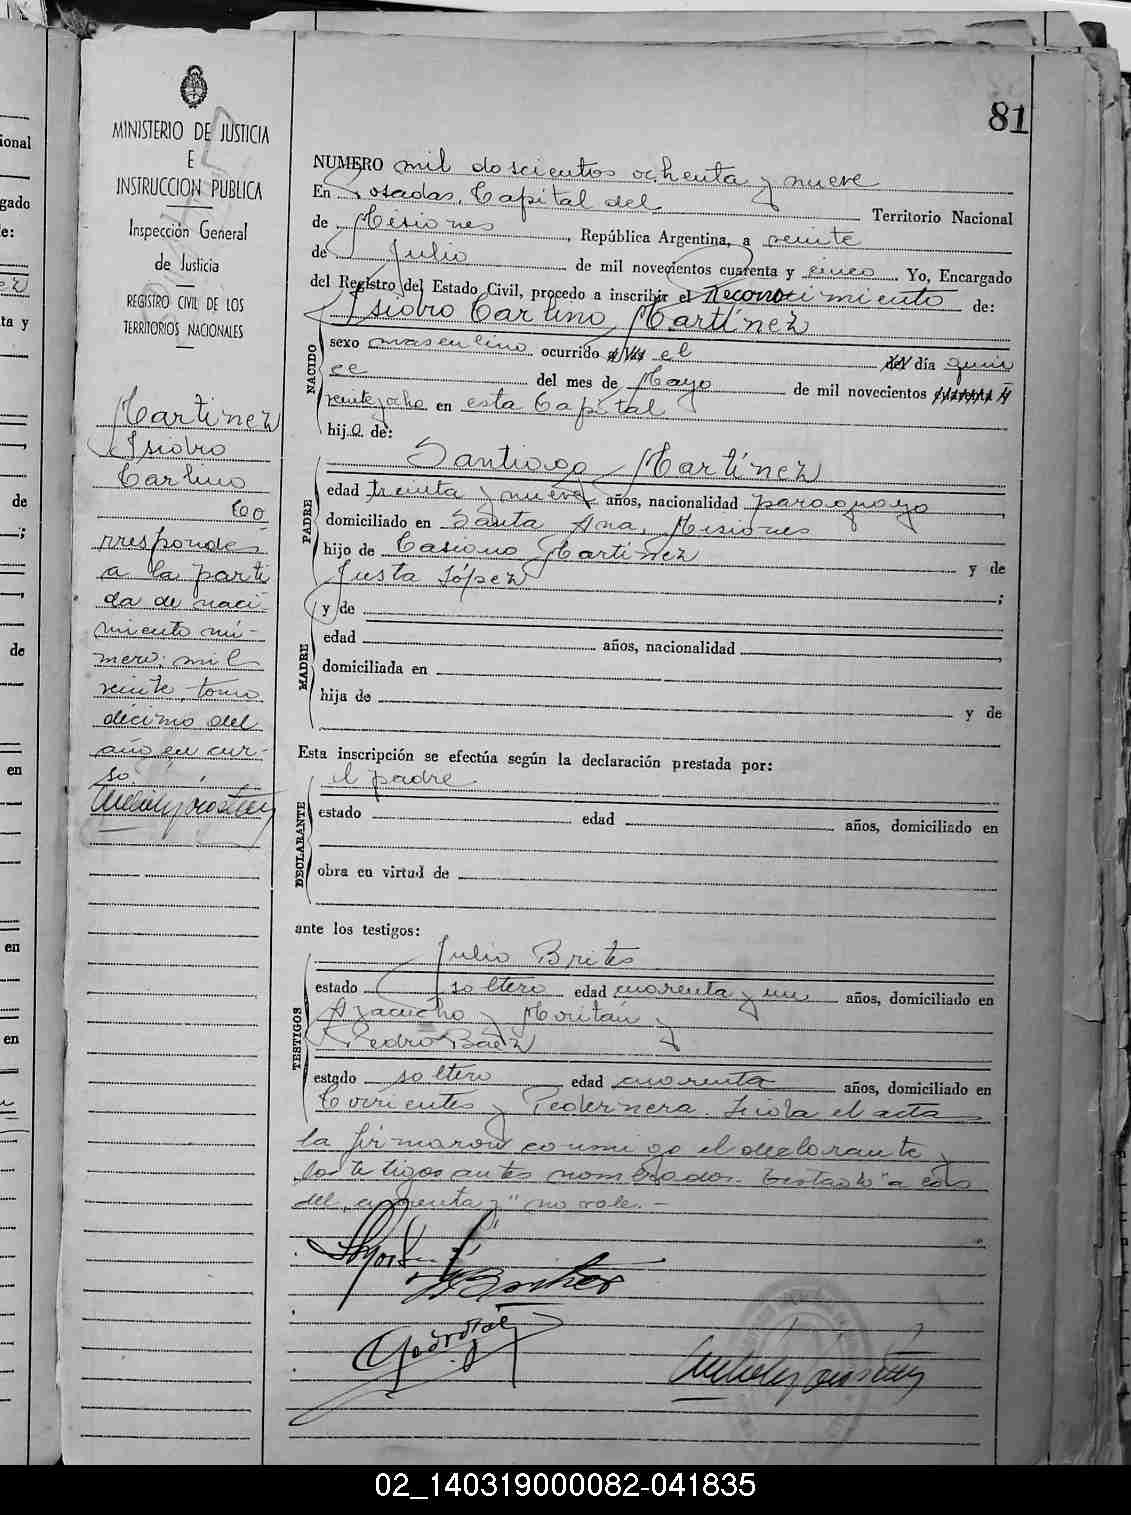 81
MINISTERIO DE JUSTICIA
E
INSTRUCCION PUBLICA
Inspección General
de Justicia
REGISTRO CIVIL DE LOS
TERRITORIOS NACIONALES
Martinez
Isidro
Carlino
Co
rresponde
a la parti
da de naci-
miento nú-
mero: mil
veinte, tomo
décimo del
año en cur-
so.
NUMERO mil doscientos ochenta y nueve
En Posadas, Capital del Territorio Nacional
de Misiones, República Argentina, a veinte
de Julio de mil novecientos cuarenta y cinco Yo, Encargado
del Registro del Estado Civil, procedo a inscribir el Reconocimiento de:
Isidro Carlino Martínez
NACIDO
sexo masculino ocurrido el día quin
ce del mes de Mayo de mil novecientos
veintyocho en esta Capital
hijo de:
PADRE
Santiago Martínez
edad treinta y nueve años, nacionalidad paraguayo
domiciliado en Santa Ana, Misiones
hijo de Casiano Martinez y de
Justa López ;
MADRE
y de
edad años, nacionalidad
domiciliada en
hija de y de
Esta inscripción se efectúa según la declaración prestada por:
el padre
DECLARANTE
estado edad años, domiciliado en
obra en virtud de
ante los testigos:
TESTIGOS
Julio Brites
estado soltero edad cuarenta y un años, domiciliado en
Ayacucho y Moritán y
Pedro Baez
estado soltero edad cuarenta años, domiciliado en
Corrientes y Pedernera. Leída el acta
la firmaron conmigo el declarante y
los testigos antes nombrados. Testado "a las
del, cuarenta y" no vale.-
02_140319000082-041835